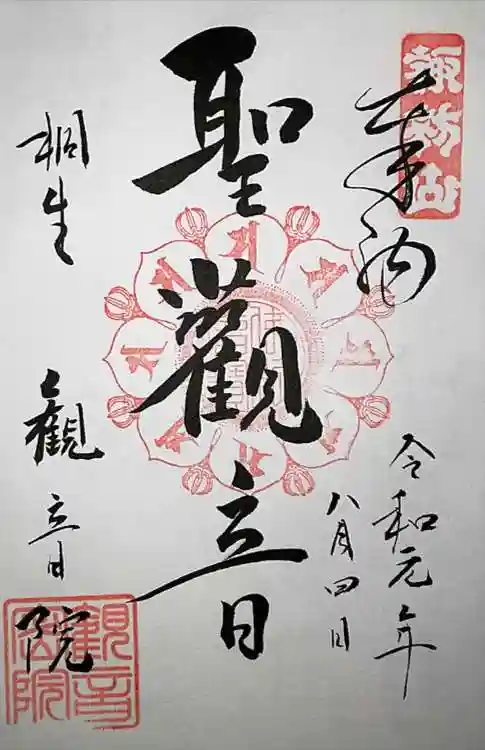 諏訪山
奉納
令和元年
八月四日
聖觀音
桐生
観音院
觀音院